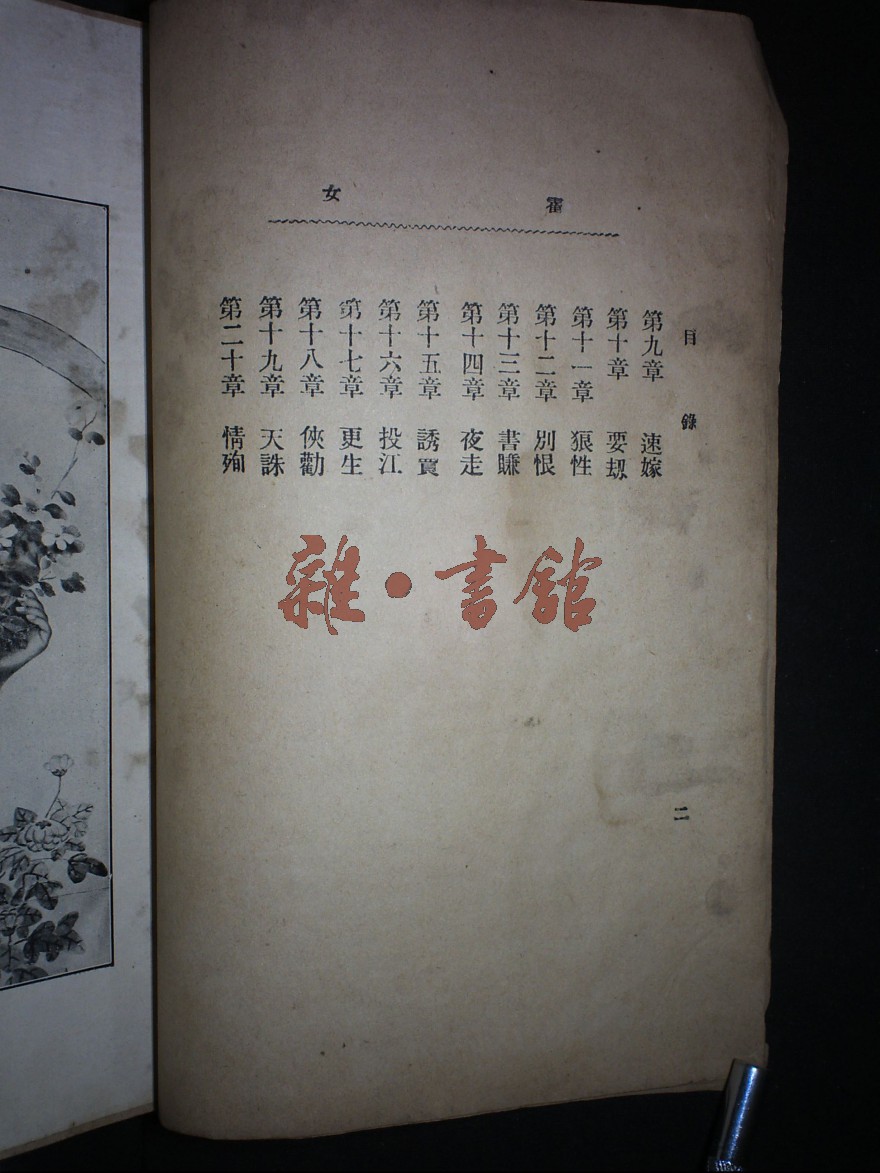 霍女
目錄
第九章 速嫁
第十章 要刼
第十一章 狠性
第十二章 別恨
第十三章 書賺
第十四章 夜走
第十五章 誘賣
第十六章 投江
第十七章 更生
第十八章 俠勸
第十九章 天誅
第二十章 情殉
二
雜·書館